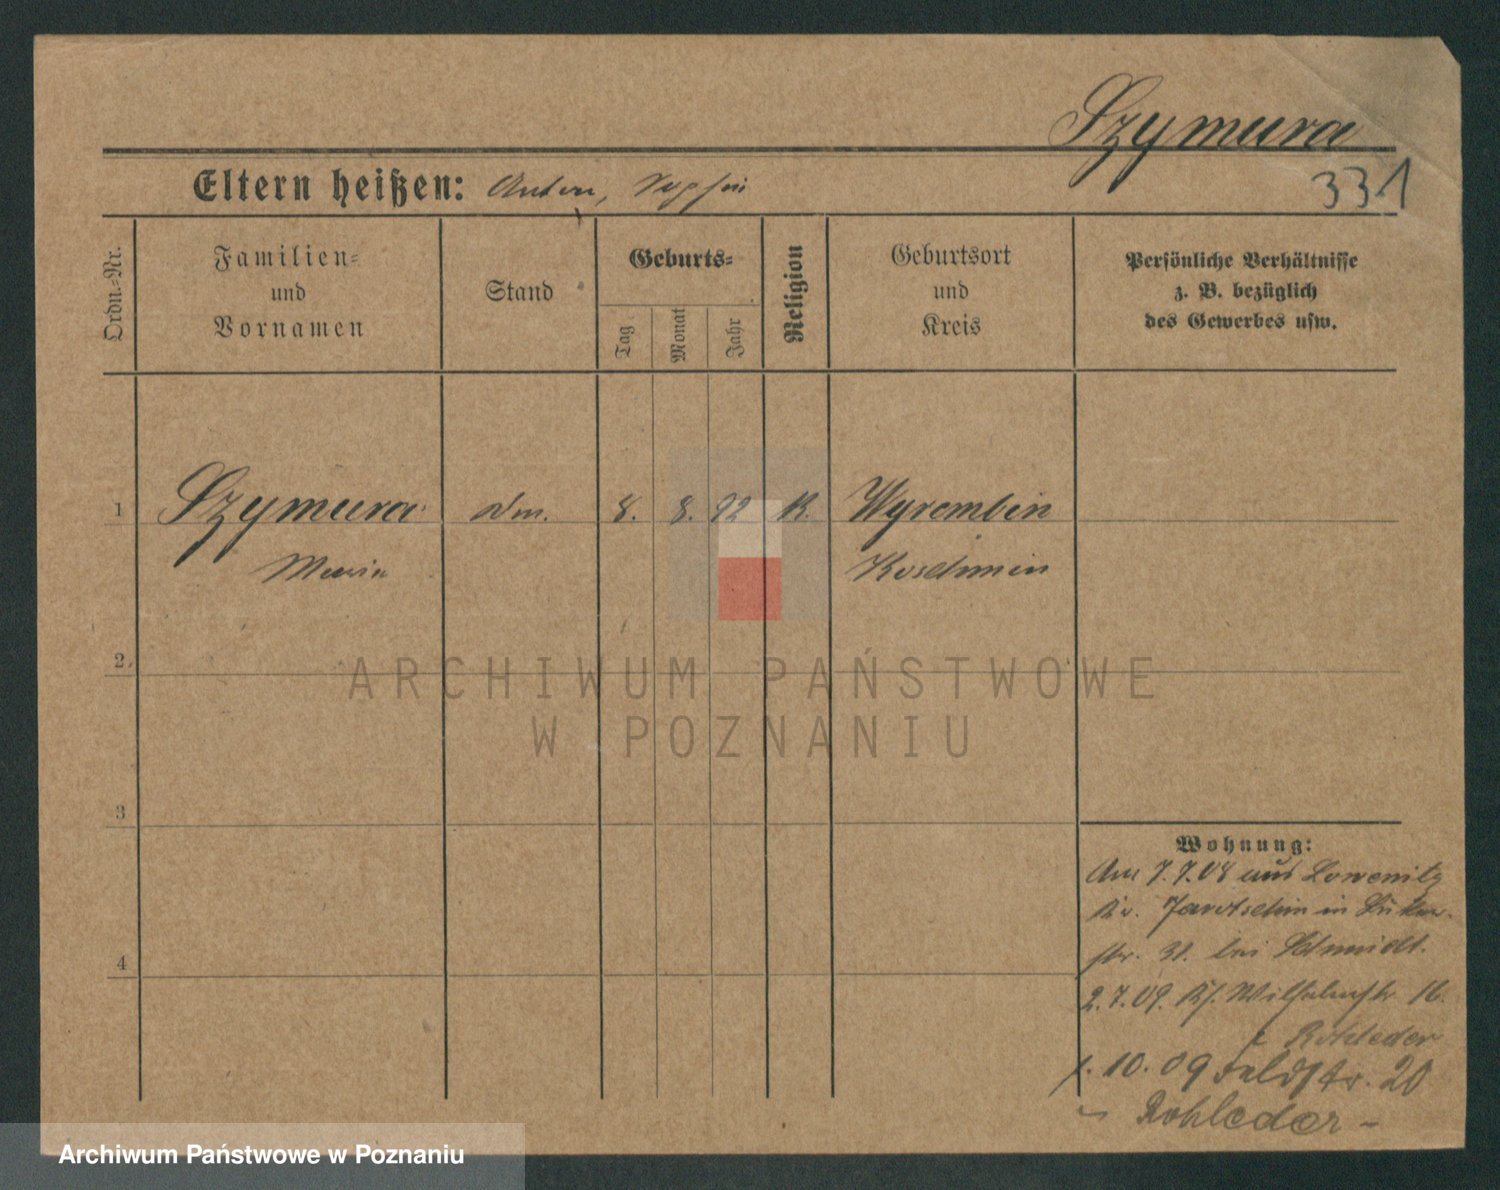 Szymura
331
Eltern heißen: Anton,
Ordn.-Nr.
Familien-
und
Vornamen
Stand
Geburts-
Tag
Monat
Jahr
Religion
Geburtsort
und
Kreis
Persönliche Verhältnisse
z. B. bezüglich
des Gewerbes usw.
1 Szymura 8. 8. 92 K. Wyrembin
Maria Koschmin
2
3
4
Wohnung:
Am 7.7.08 aus
Kr. Jarotschin in
str. 31. bei Schmidt.
2.7.09. Wilhelmstr 16.
Rohleder
1.10.09 Feldstr. 20
Rohleder
ARCHIWUM PAŃSTWOWE
W POZNANIU
Archiwum Państwowe w Poznaniu